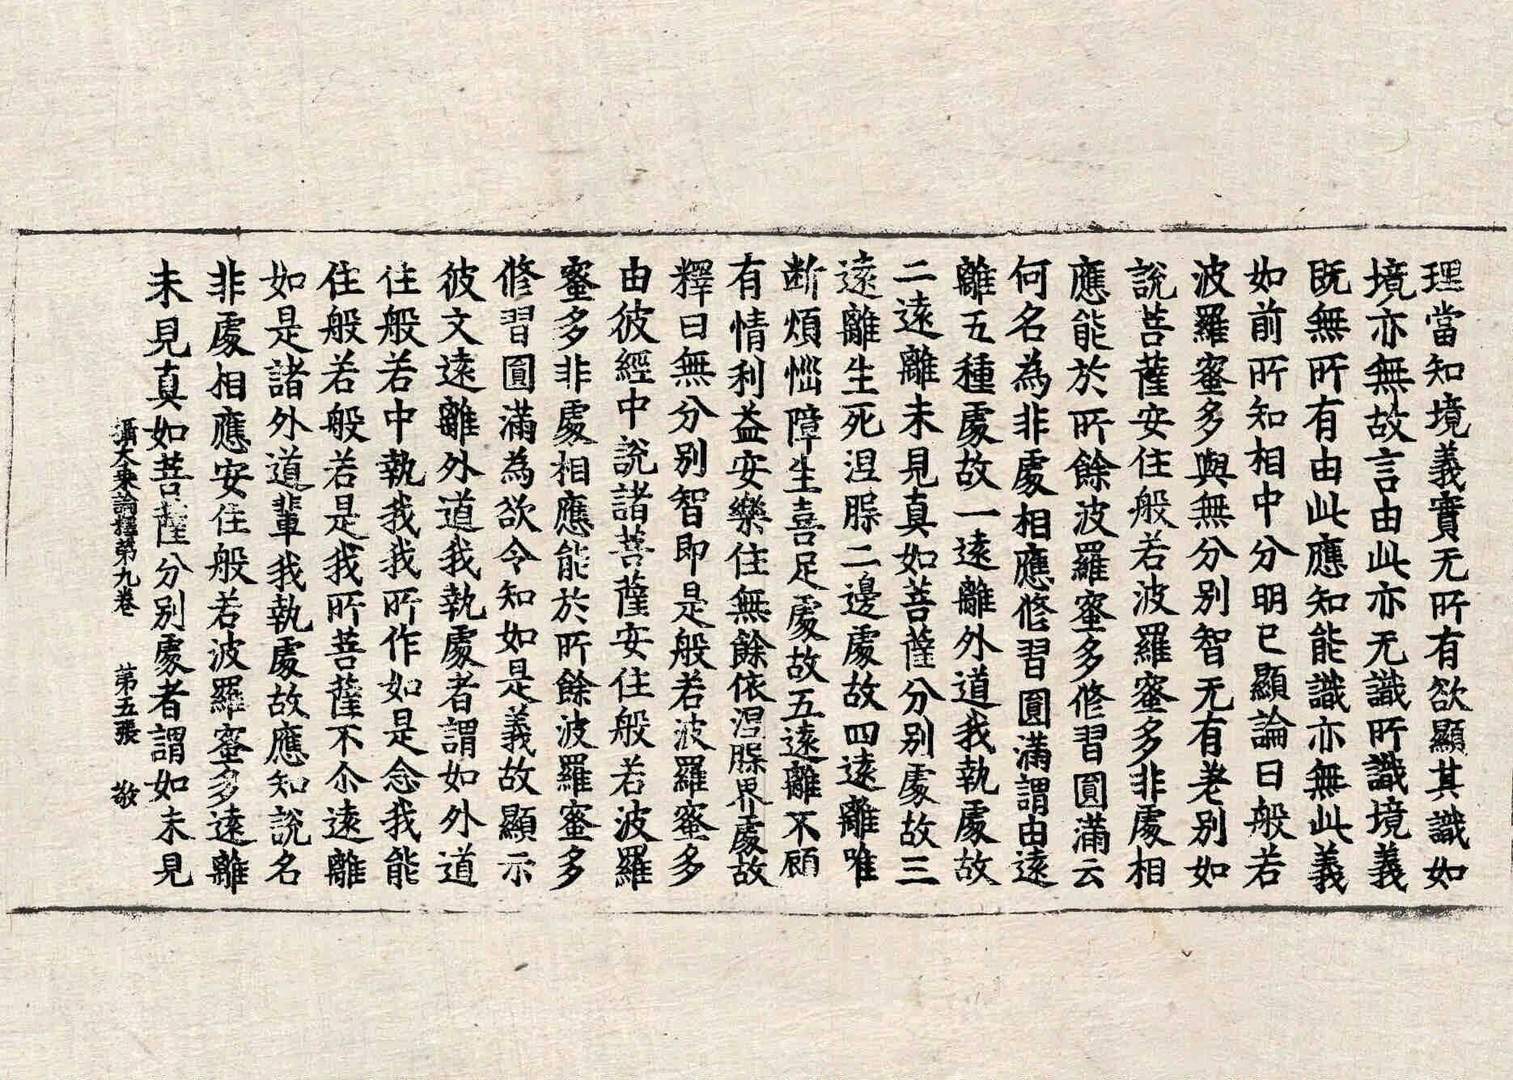 理當知境義實无所有欲顯其識如
境亦無故言由此亦无識所識境義
既無所有由此應知能識亦無此義
如前所知相中分明已顯論曰般若
波羅蜜多與無分別智无有差別如
說菩薩安住般若波羅蜜多非處相
應能於所餘波羅蜜多修習圓滿云
何名為非處相應修習圓滿謂由遠
離五種處故一遠離外道我執處故
二遠離未見真如菩薩分別處故三
遠離生死涅槃二邊處故四遠離唯
断煩惱障生喜足處故五遠離不顧
有情利益安樂住無餘依涅槃界處故
釋曰無分別智即是般若波羅蜜多
由彼經中說諸菩薩安住般若波羅
蜜多非處相應能於所餘波羅蜜多
修習圓滿為欲令知如是義故顯示
彼文遠離外道我執處者謂如外道
住般若中執我我所作如是念我能
住般若般若是我所菩薩不尒遠離
如是諸外道輩我執處故應知說名
非處相應安住般若波羅蜜多遠離
未見真如菩薩分別處者謂如未見
攝大乗論釋第九卷 第五張 敬